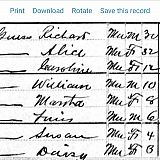 Print Download Rotate Save this record
Richard Mu M 32
Alice Mu F 32
Caroline Mu F 12
William Mu M 10
Martha Mu F 8
Mu M 6
Susan Mu F 4
Daisy Mu F 2